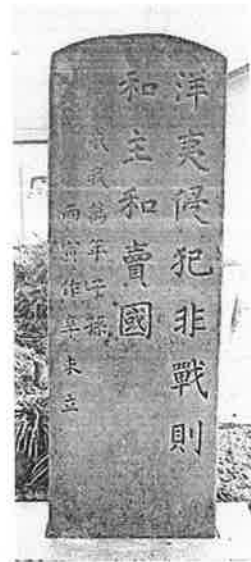 洋夷侵犯非戰則
和主和賣國
戒我萬年子孫
丙寅作辛未立